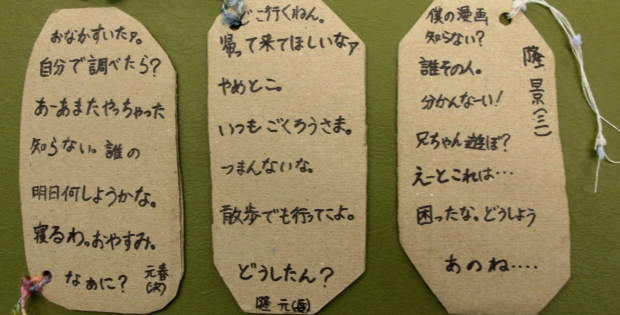 おなかすいたァ。
自分で調べたら?
あーあまたやっちゃった
知らない。誰の
明日何しようかな。
寝るわ。おやすみ。
なぁに?
元春(次)
どこ行くねん。
帰って来てほしいなァ
やめとこ。
いつもごくろうさま。
つまんないな。
散歩でも行ってこよ。
どうしたん?
隆元(長)
僕の漫画
知らない?
誰その人。
分かんなーい!
兄ちゃん遊ぼ?
えーとこれは…
困ったな。どうしよう
あのね‥‥
隆景(三)